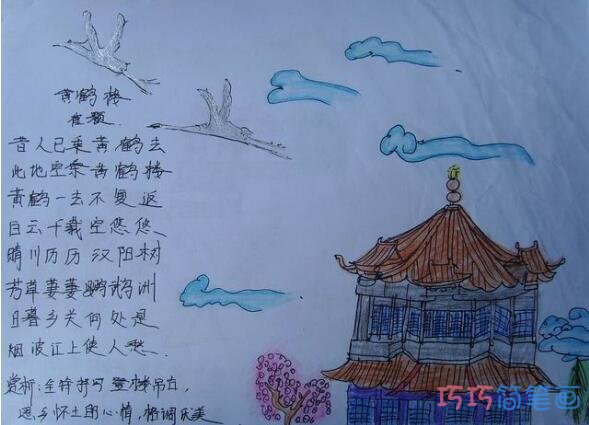 黄鹤楼
崔颢
昔人已乘黄鹤去
此地空余黄鹤楼
黄鹤一去不复返
白云千载空悠悠
晴川历历汉阳树
芳草萋萋鹦鹉洲
日暮乡关何处是
烟波江上使人愁.
赏析:全诗抒写登楼吊古,
思乡怀土的心情,格调优美
巧巧简笔画